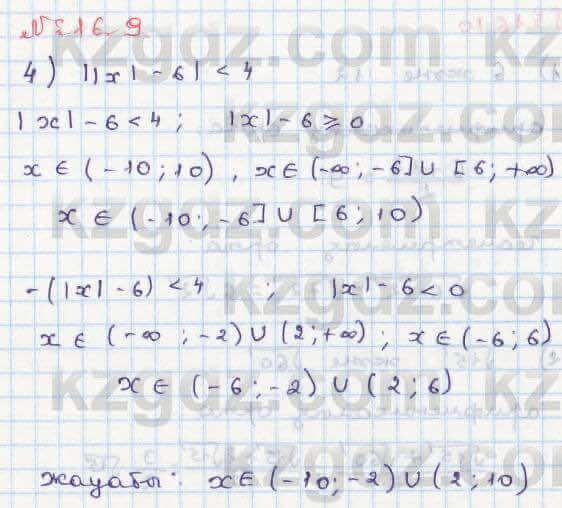 № 16.9
4) ||x| - 6| < 4
|x| - 6 < 4 ; |x| - 6 ⩾ 0
x ∈ (-10; 10) , x ∈ (-∞; -6] ∪ [6; +∞)
x ∈ (-10; -6] ∪ [6; 10)
-(|x| - 6) < 4 ; |x| - 6 < 0
x ∈ (-∞ ; -2) ∪ (2; +∞) ; x ∈ (-6; 6)
x ∈ (-6; -2) ∪ (2; 6)
жауабы: x ∈ (-10; -2) ∪ (2; 10)
kzgdz.com